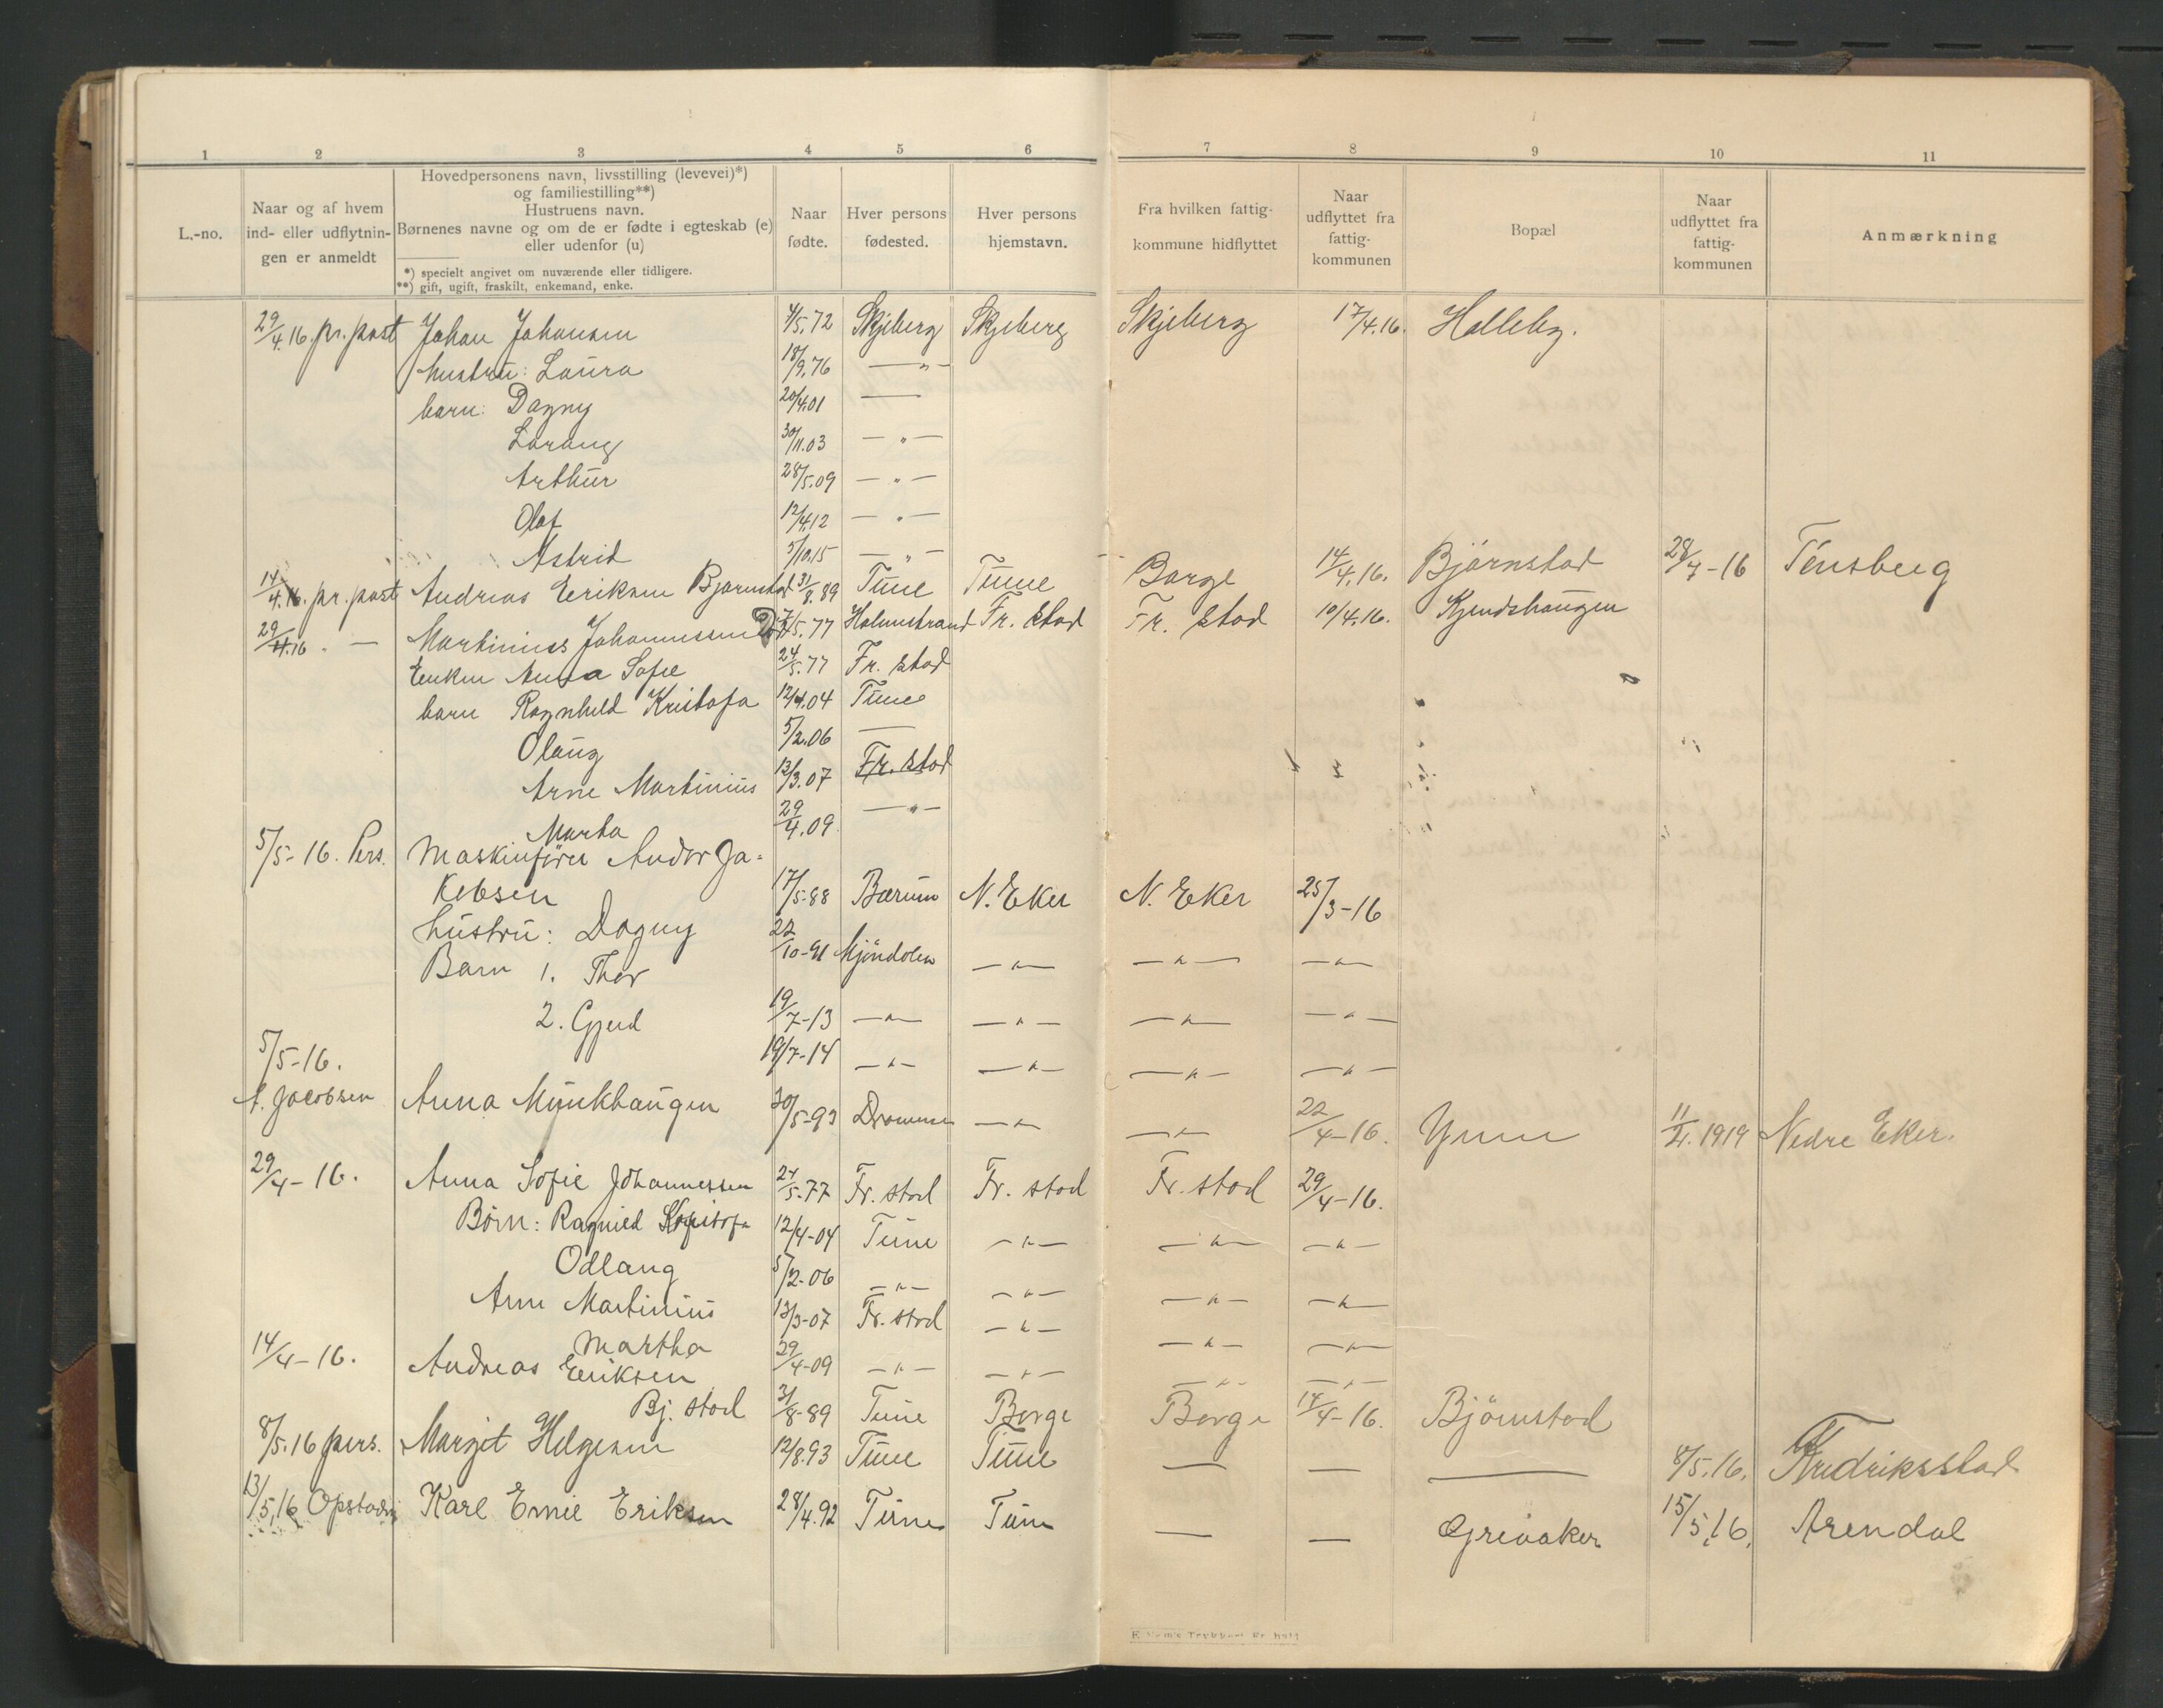 1 2 3 4 5 6 7 8 9 10 11
L.-no.
Naar og af hvem
ind- eller udflytnin-
gen er anmeldt
Hovedpersonens navn, livsstilling (levevei)*)
og familiestilling**)
Hustruens navn.
Børnenes navne og om de er fødte i egteskab (e)
eller udenfor (u)
*) specielt angivet om nuværende eller tidligere.
**) gift, ugift, fraskilt, enkemand, enke.
Naar
fødte.
Hver persons
fødested.
Hver persons
hjemstavn.
Fra hvilken fattig-
kommune hidflyttet
Naar
udflyttet fra
fattig-
kommunen
Bopæl
Naar
udflyttet fra
fattig-
kommunen
Anmærkning
29/4.16. pr. post Johan Johansen 4/5.72 Skjeberg Skjeberg Skjeberg 17/4.16. Halleby.
hustru: Laura 18/9.76 — " —
barn: Dagny 20/4.01 —
Laraug 30/11.03 — " —
Arthur 28/5.09 — " —
Olaf 12/4.12 — " —
Astrid 5/10.15 — " —
14/4.16. pr. post Andreas Eriksen Bjørnstad 31/8.89 Tune Tune Borge 14/4.16. Bjørnstad 28/7-16 Tønsberg
29/4.16. — Martinius Johannessen /5.77 Holmestrand Fr. stad Fr. stad 10/4.16. Kjendshaugen
Enken Anna Sofie 24/5.77 Fr. stad
barn Ragnhild Kristofa 12/4.04 Tune
Olaug 5/2.06 —
Arne Martinius 13/3.07 Fr. stad
Marta 29/4.09 — " —
5/5-16. Pers. Maskinfører Andor Ja-
kobsen 17/5-88 Bærum N. Eker N. Eker 25/3-16
hustru: Dagny 22/10-91 Mjöndalen — " — — " — — " —
Barn 1. Thor 19/7-13 — " — — " — — " — — " —
2. Gjerd 19/7-14 — " — — " — — " — — " —
5/5-16.
A. Jacobsen Anna Munkhaugen 30/5-93 Drammen — " — — " — 22/4-16. Ynne 11/4.1919 Nedre Eker.
29/4-16. Anna Sofie Johannessen 24/5-77 Fr. stad Fr. stad Fr. stad 29/4-16.
Børn: Ragnild Kristofa 12/4-04 Tune — " — — " — — " —
Odlaug 5/2-06 — " — — " — — " — — " —
Arne Martinius 13/3-07 Fr. stad — " — — " — — " —
Martha 29/4-09 — " — — " — — " — — " —
14/4-16. Andreas Eriksen
Bj. stad 31/8-89 Tune Borge Borge 14/4-16. Bjørnstad
8/5.16 pers. Margit Helgesen 12/8.93 Tune Tune — — — 8/5.16. Fredriksstad
13/5,16 Karl Emil Eriksen 28/4.92 Tune Tune — — Greaaker 15/5,16. Arendal